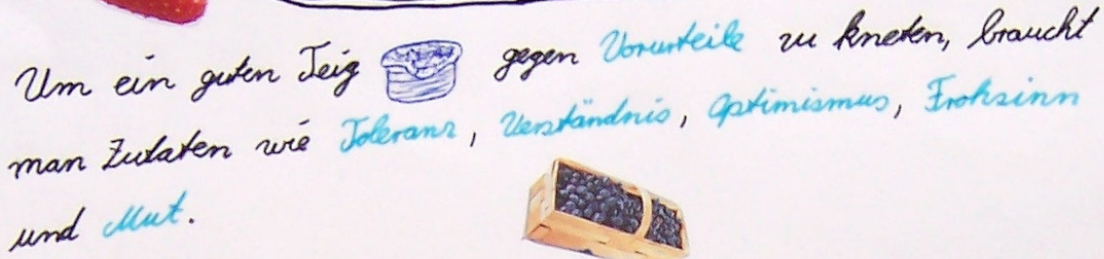 Um ein guten Teig gegen Vorurteile zu kneten, braucht
man Zutaten wie Toleranz, Verständnis, Optimismus, Frohsinn
und Mut.